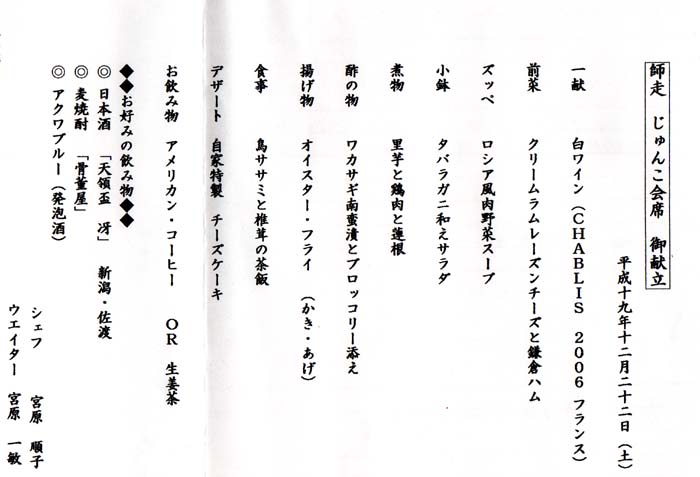 師走　じゅんこ会席　御献立
平成十九年十二月二十二日（土）
一献　白ワイン（CHABLIS　2006フランス）
前菜　クリームラムレーズンチーズと鎌倉ハム
ズッペ　ロシア風肉野菜スープ
小鉢　タバラガニ和えサラダ
煮物　里芋と鶏肉と蓮根
酢の物　ワカサギ南蛮漬とブロッコリー添え
揚げ物　オイスター・フライ　（かき・あげ）
食事　鳥ササミと椎茸の茶飯
デザート　自家特製　チーズケーキ
お飲み物　アメリカン・コーヒー　OR　生姜茶
◆◆お好みの飲み物◆◆
◎　日本酒　「天領盃　冴」　新潟・佐渡
◎　麦焼酎　「骨董屋」
◎　アクワブルー（発泡酒）
シェフ　宮原　順子
ウエイター　宮原　一敏